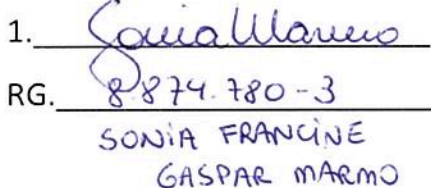 1. Sonia Marmo
RG. 8.874.780-3
SONIA FRANCINE
GASPAR MARMO